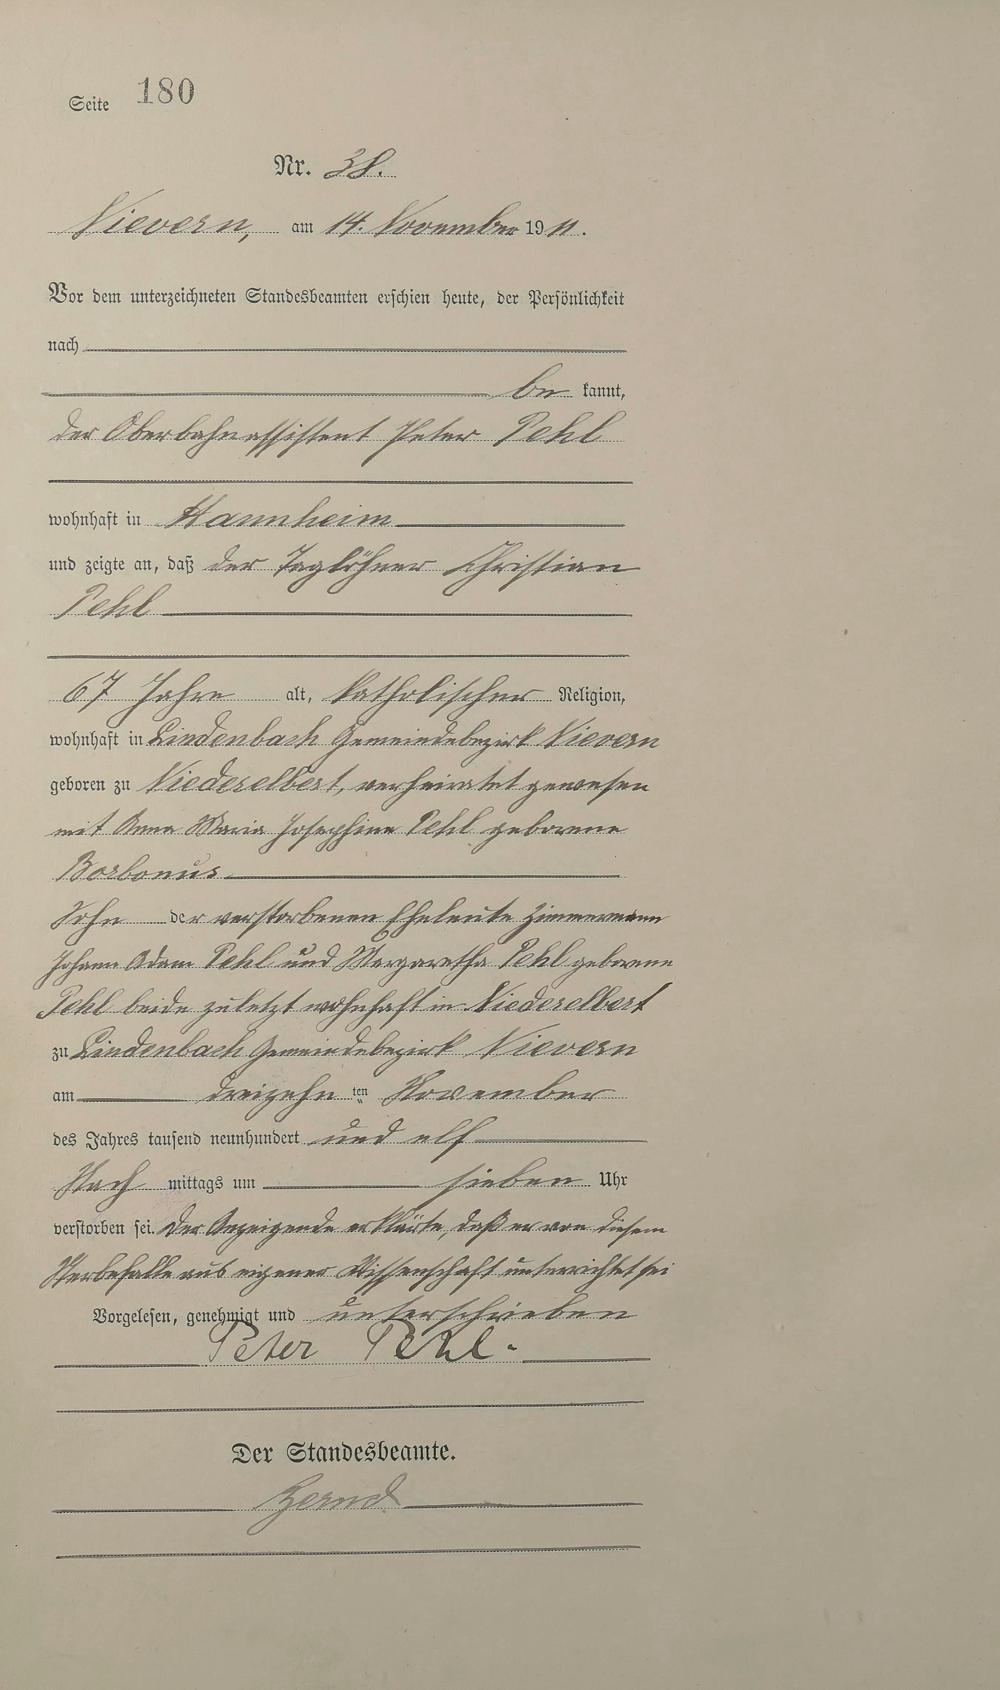 Seite 180
Nr. 38.
Nievern, am 14. November 1911.
Vor dem unterzeichneten Standesbeamten erschien heute, der Persönlichkeit
nach
be kannt,
der Oberbahnassistent Peter Pehl
wohnhaft in Mannheim
und zeigte an, daß der Taglöhner Christian
Pehl
67 Jahre alt, katholischer Religion,
wohnhaft in Lindenbach Gemeindebezirk Nievern
geboren zu Niederelbert, verheiratet gewesen
mit Anna Maria Josephine Pehl geborene
Borbonus
Sohn der verstorbenen Eheleute Zimmermann
Johann Adam Pehl und Margaretha Pehl geborene
Pehl beide zuletzt wohnhaft in Niederelbert
zu Lindenbach Gemeindebezirk Nievern
am dreizehn ten November
des Jahres tausend neunhundert und elf
Nach mittags um sieben Uhr
verstorben sei. Der Anzeigende erklärte, daß er von diesem
Sterbefalle aus eigener Wissenschaft unterrichtet sei
Vorgelesen, genehmigt und unterschrieben
Peter Pehl.
Der Standesbeamte.